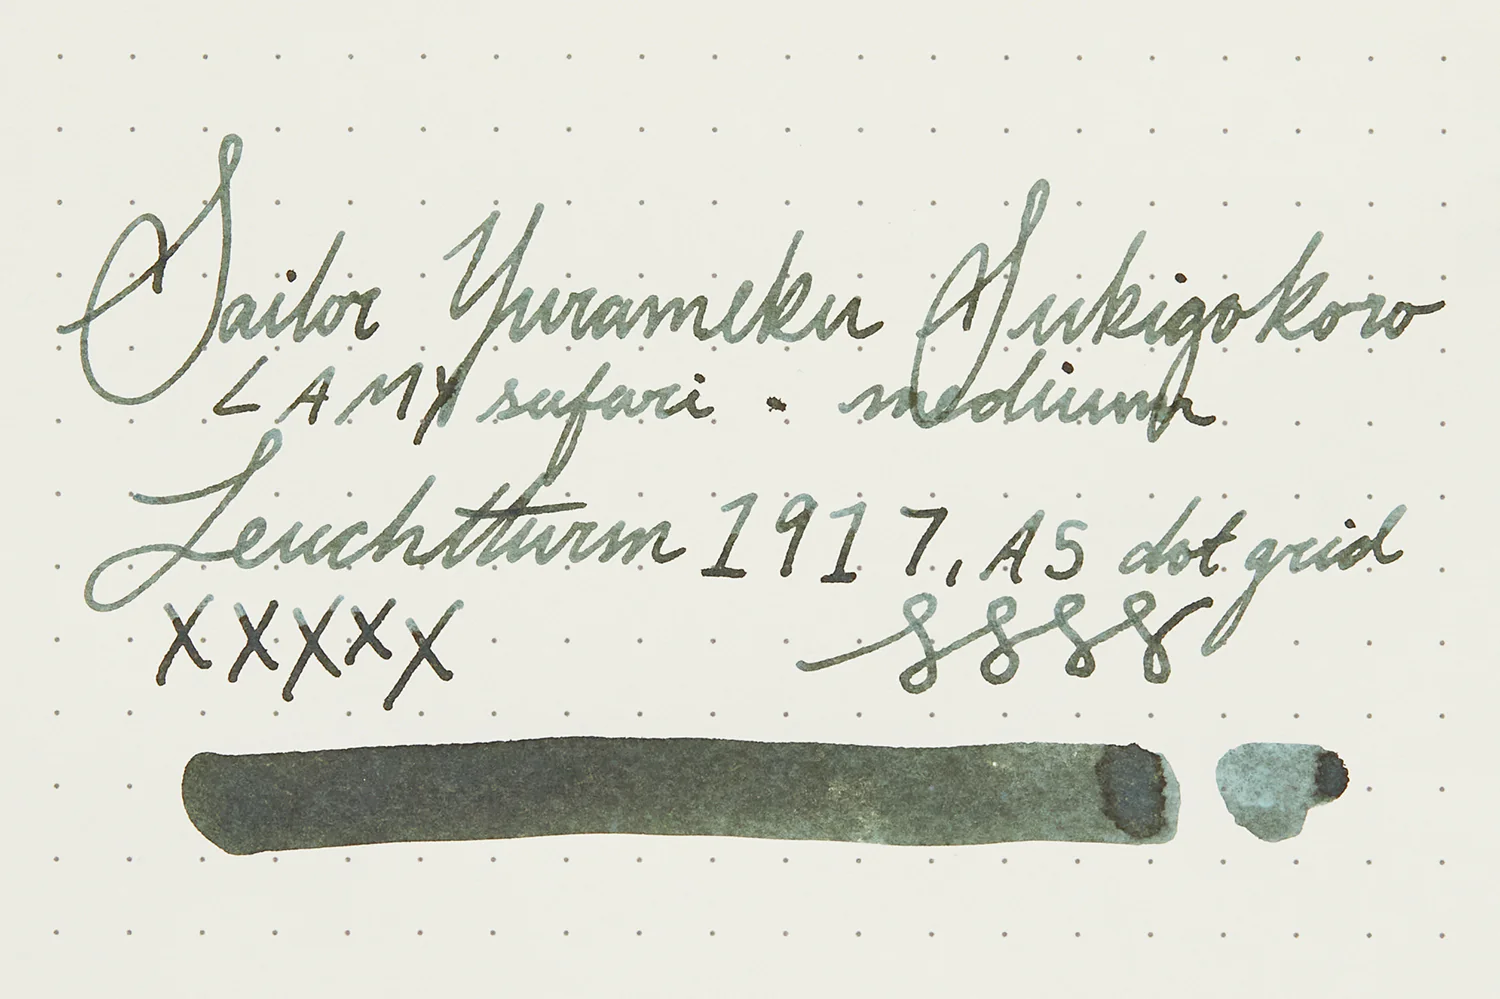 Sailor Yurameku Sukigokoro
LAMY safari · medium
Leuchtturm 1917, A5 dot grid
XXXXX 8888